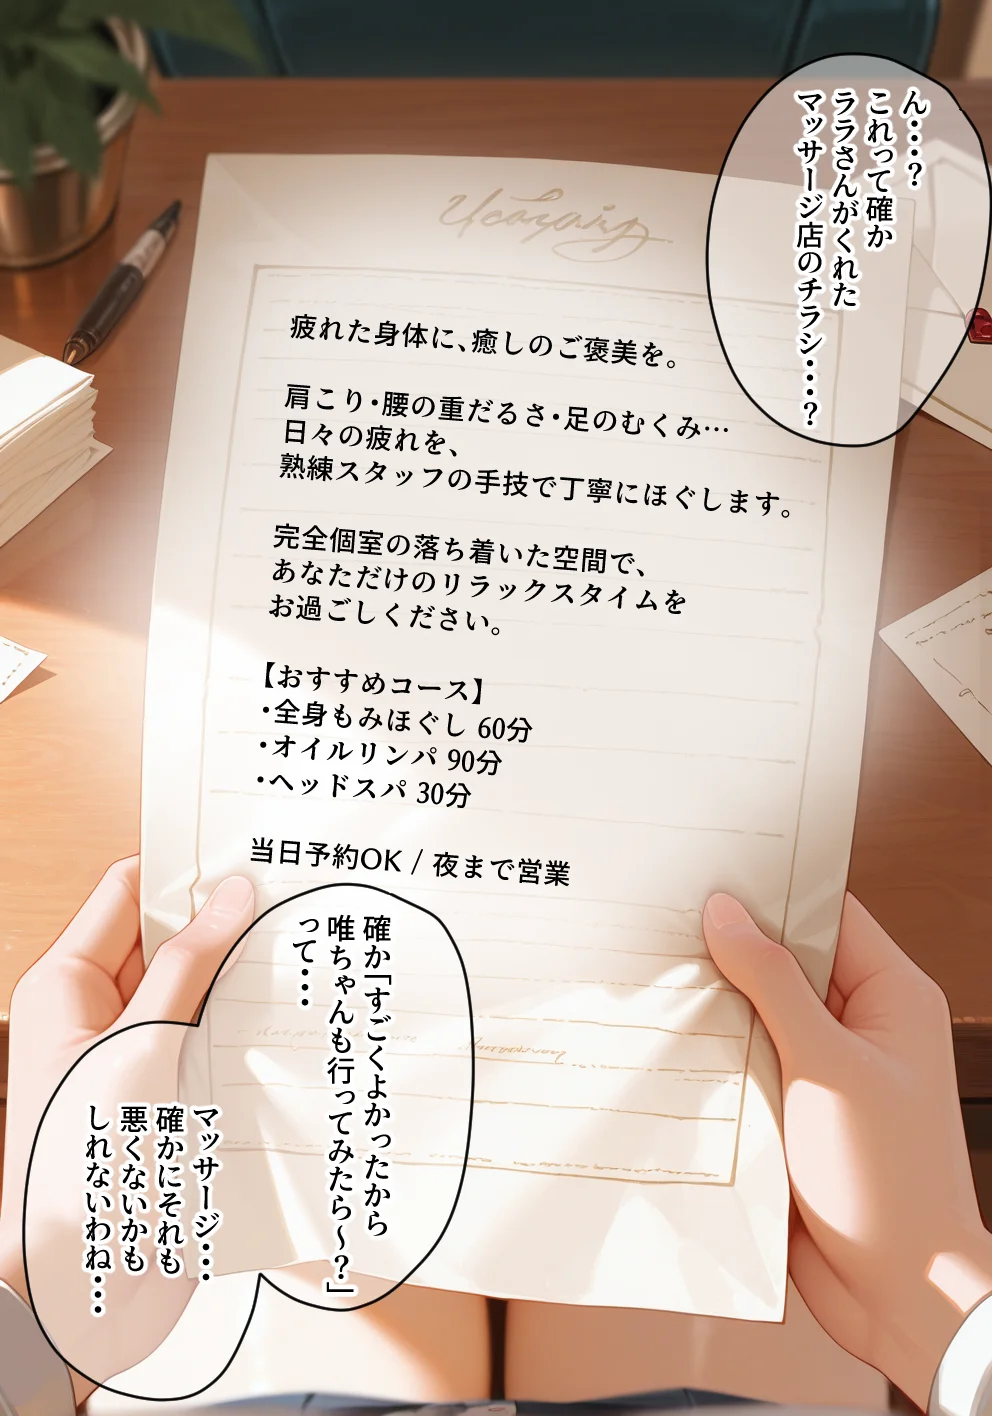 ん・・・?
これって確か
ララさんがくれた
マッサージ店のチラシ・・・?
疲れた身体に、癒しのご褒美を。
肩こり・腰の重だるさ・足のむくみ…
日々の疲れを、
熟練スタッフの手技で丁寧にほぐします。
完全個室の落ち着いた空間で、
あなただけのリラックスタイムを
お過ごしください。
【おすすめコース】
・全身もみほぐし 60分
・オイルリンパ 90分
・ヘッドスパ 30分
当日予約OK / 夜まで営業
確か「すごくよかったから
唯ちゃんも行ってみたら～?」
って・・・
マッサージ・・・
確かにそれも
悪くないかも
しれないわね・・・